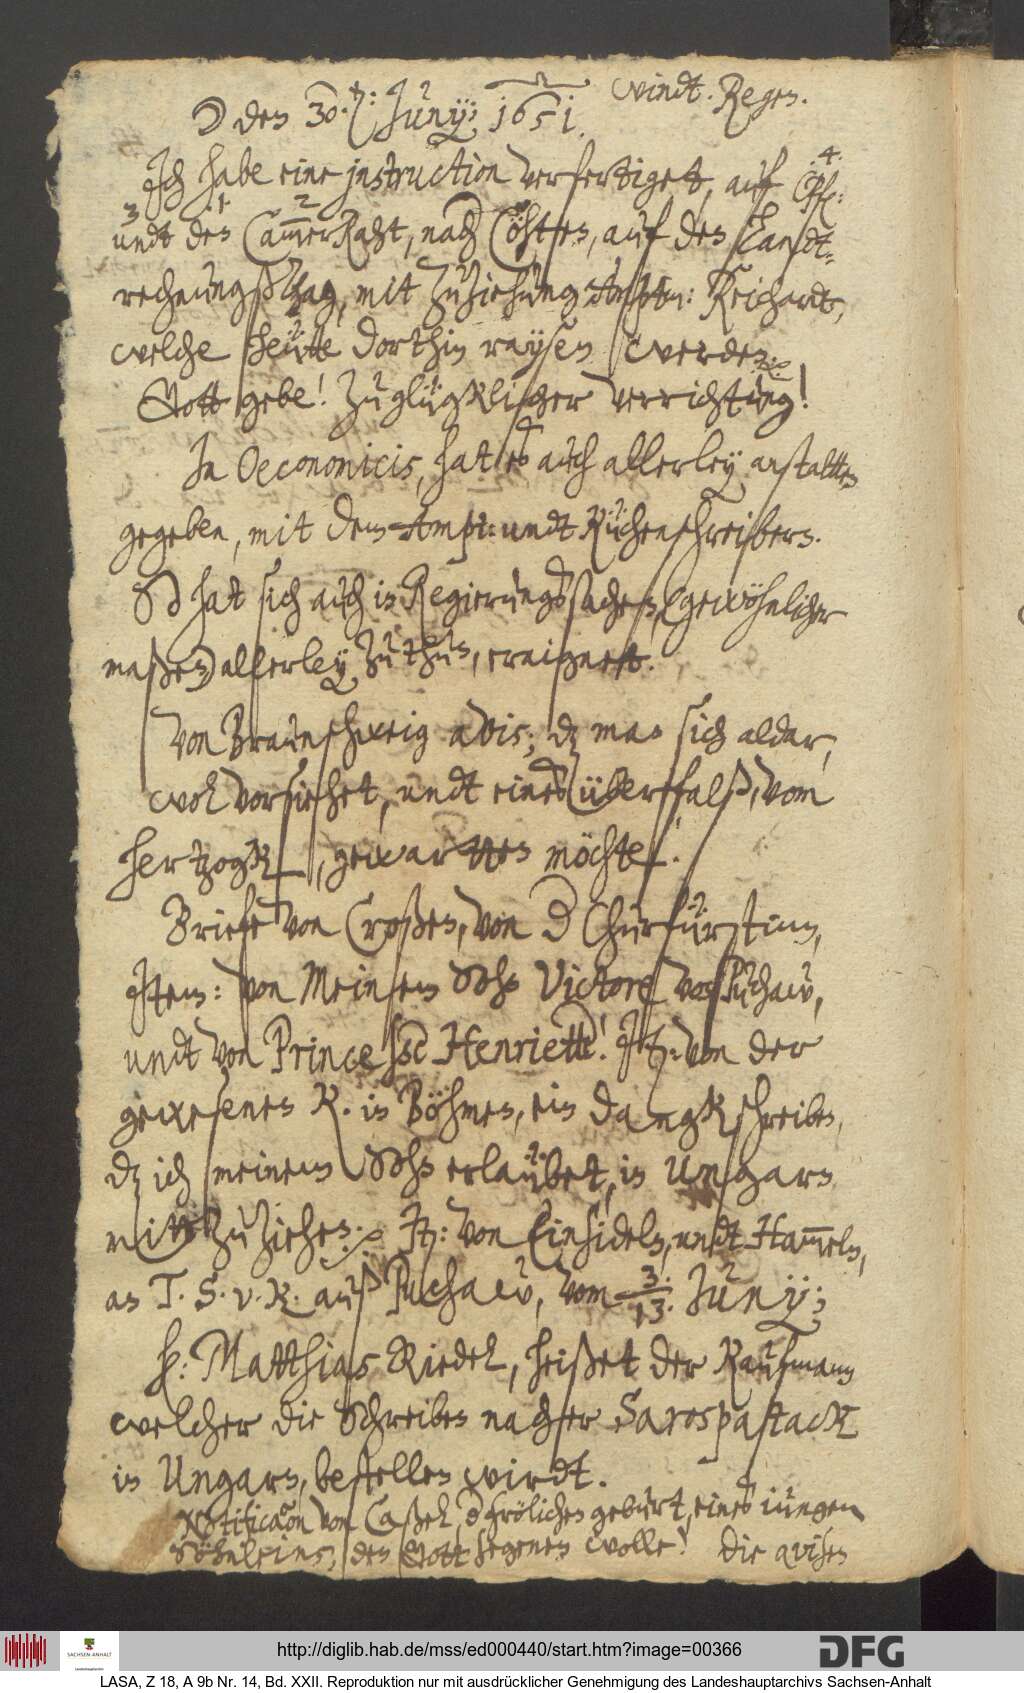 ☽ den 30. Juny; 1651. windt. Regen.
Ich habe eine instruction verfertiget, auf
undt den CammerRaht, nach Cöhten, auf den Landt-
rechnungßtag, mit zuziehung Amptm: Reichardt,
welche heütte dorthin raysen werden.
Gott gebe! zu glügklicher verrichtung!
In Oeconomicis, hat es auch allerley anstaltten
gegeben, mit dem Ampt: undt Küchenschreibern.
So hat sich auch in Regierungßsachen, (gewöhnlicher
maßen) allerley zu thun, eraignett.
Von Braunschweig avis; dz man sich aldar,
wol vorsiehet, undt eines überffalß, vom
hertzogk, gewartten möchte.
Briefe von Croßen, von der Churfürstinn,
Item: von Meinem Sohn Victore von Puchaw,
undt von Princessoe Henriette! It: von der
gewesenen K. in Böhmen, ein dangkschreiben,
dz ich meinem Sohn erlaübet, in Ungarn
mitt zu ziehen. It: von Einsideln, undt Hammeln,
an T. S. v. K. auß Puchaw, vom 3./13. Juny;
H: Matthias Riedel, heißet der Kaufmann
welcher die Schreiben nacher Sarospatack
in Ungarn, bestellen wirdt.
Notification von Caßel, der frölichen geburt, eines iungen
Söhnleins, den Gott segenen wolle! Die avisen
http://diglib.hab.de/mss/ed000440/start.htm?image=00366
SACHSEN-ANHALT
Landeshauptarchiv
DFG
LASA, Z 18, A 9b Nr. 14, Bd. XXII. Reproduktion nur mit ausdrücklicher Genehmigung des Landeshauptarchivs Sachsen-Anhalt